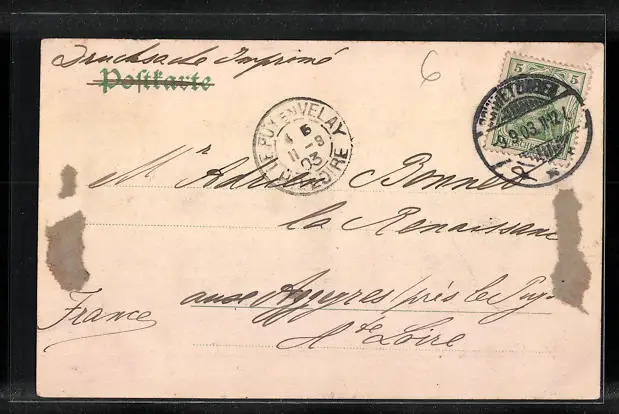 Drucksache Imprimé
Postkarte
6
5 5
9.9.03. 11-12 V.
LE PUY EN VELAY
5
11 -9
03
Hte LOIRE
Mr Adrien Bonnet
la Renaissance
France
près le Puy
Hte Loire